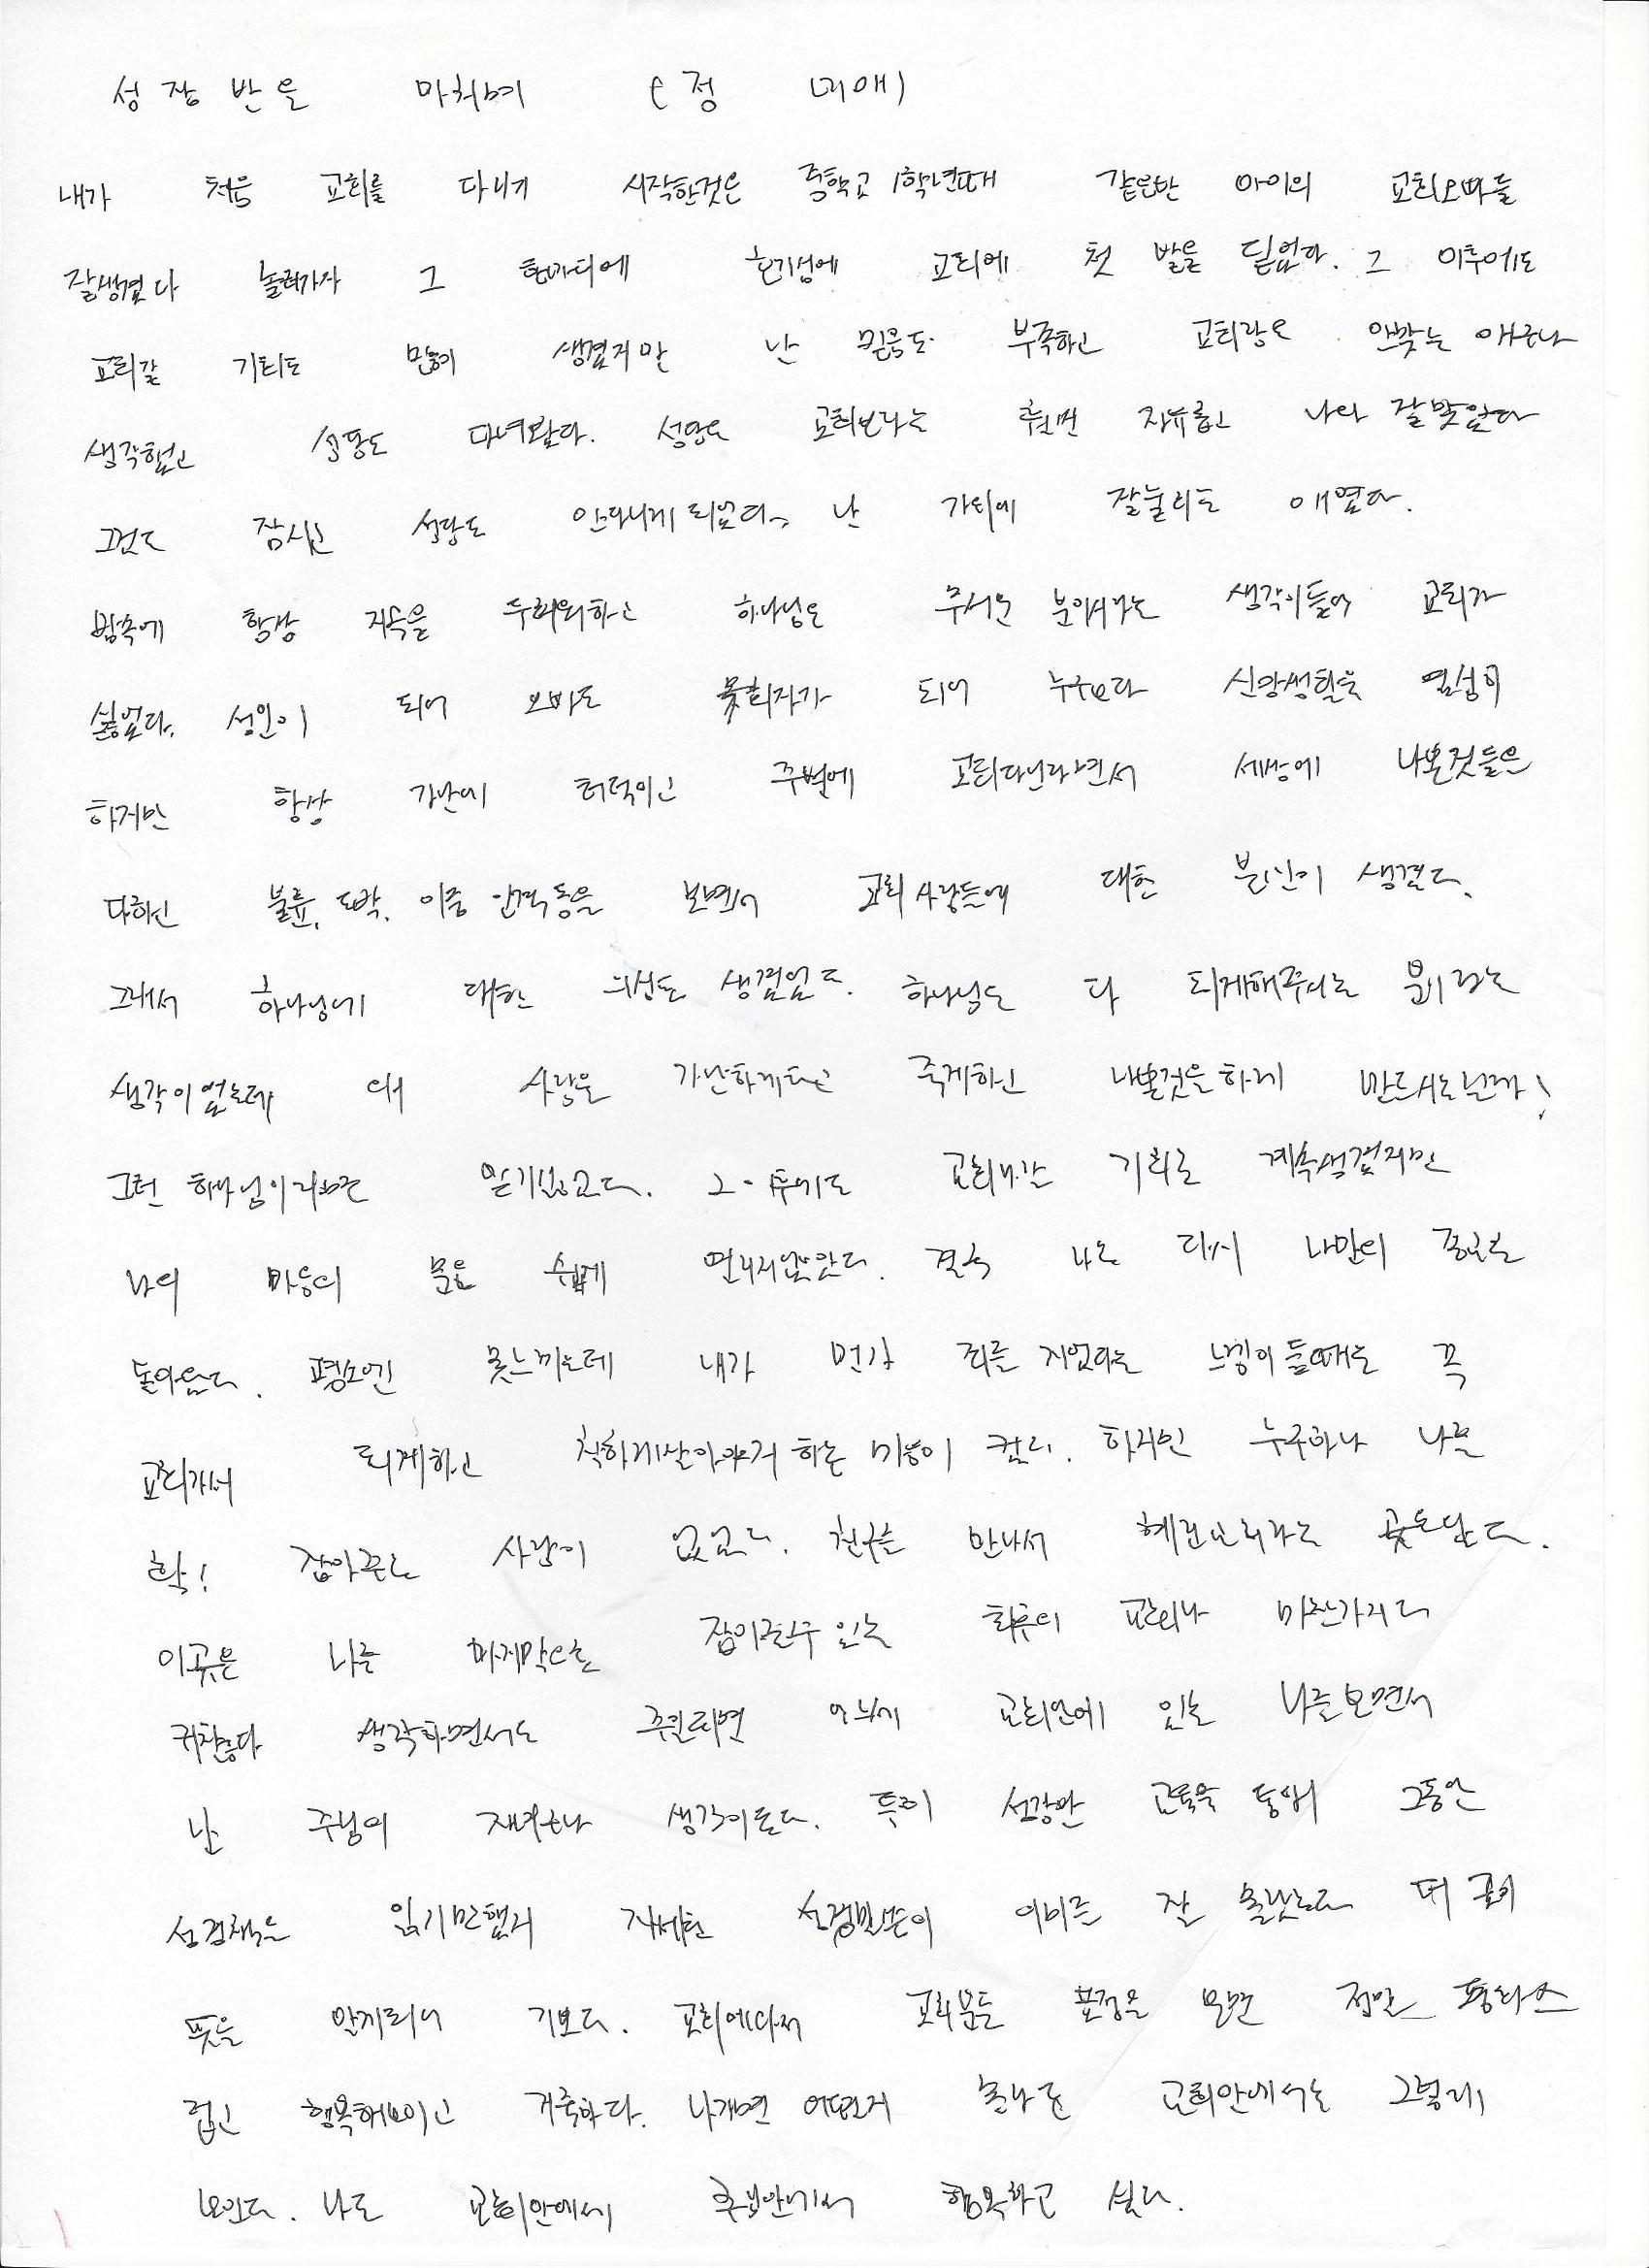 성장반을 마치며 (정 미애)
내가 처음 교회를 다니기 시작한것은 중학교 1학년때 같은반 아이의 교회오빠들
잘생겼다 놀러가자 그 한마디에 호기심에 교회에 첫 발을 딛었다. 그 이후에도
교회갈 기회도 많이 생겼지만 난 믿음도 부족하고 교회랑은 안맞는 애구나
생각했고 성당도 다녀왔다. 성당은 교회보다는 훨씬 자유롭고 나와 잘맞았다
그것도 잠시고 성당도 안다니게 되었다. 난 가위에 잘눌리는 애였다.
꿈속에 항상 지옥을 두려워하고 하나님은 무서운 분이라는 생각이들어 교회가
싫었다. 성인이 되어 오빠도 목회자가 되어 누구보다 신앙생활을 열심히
하지만 항상 가난에 허덕이고 주변에 교회다닌다면서 세상에 나쁜짓들은
다하고 불륜, 도박, 이중 인격 등을 보면서 교회 사람들에 대한 불신이 생겼다.
그래서 하나님에 대한 의심도 생겼었다. 하나님은 다 회개해주시는 분이라는
생각이었는데 왜 사람을 가난하게하고 죽게하고 나쁜것을 하게 만드시는걸까!
그런 하나님이라면 믿기싫었다. 그 이후에도 교회나갈 기회는 계속생겼지만
나의 마음의 문은 쉽게 열리지않았다. 결국 나는 다시 나만의 종교로
돌아왔다. 평소엔 못느끼는데 내가 뭔가 죄를 지었다는 느낌이 들때는 꼭
교회가서 회개하고 착하게살아야지 하는 마음이 컸다. 하지만 누구하나 나를
확! 잡아주는 사람이 없었다. 친구를 만나서 교회라는 곳을 왔다.
이곳은 나를 마지막으로 잡아줄수 있는 최후의 교회나 마찬가지다
귀찮다 생각하면서도 주일되면 어느새 교회안에 있는 나를보면서
난 주님의 자녀구나 생각이든다. 특히 성장반 교육을 통해 그동안
성경책을 읽기만했지 자세한 성경말씀이 의미를 잘 몰랐는데 더 깊이
뜻을 알게되니 기쁘다. 교회에다녀 교회분들 표정을 보면 정말 평화스
럽고 행복해보이고 거룩하다. 나가면 어떨지 몰라도 교회안에서는 그렇게
보인다. 나도 교회안에서 주님안에서 행복하고 싶다.